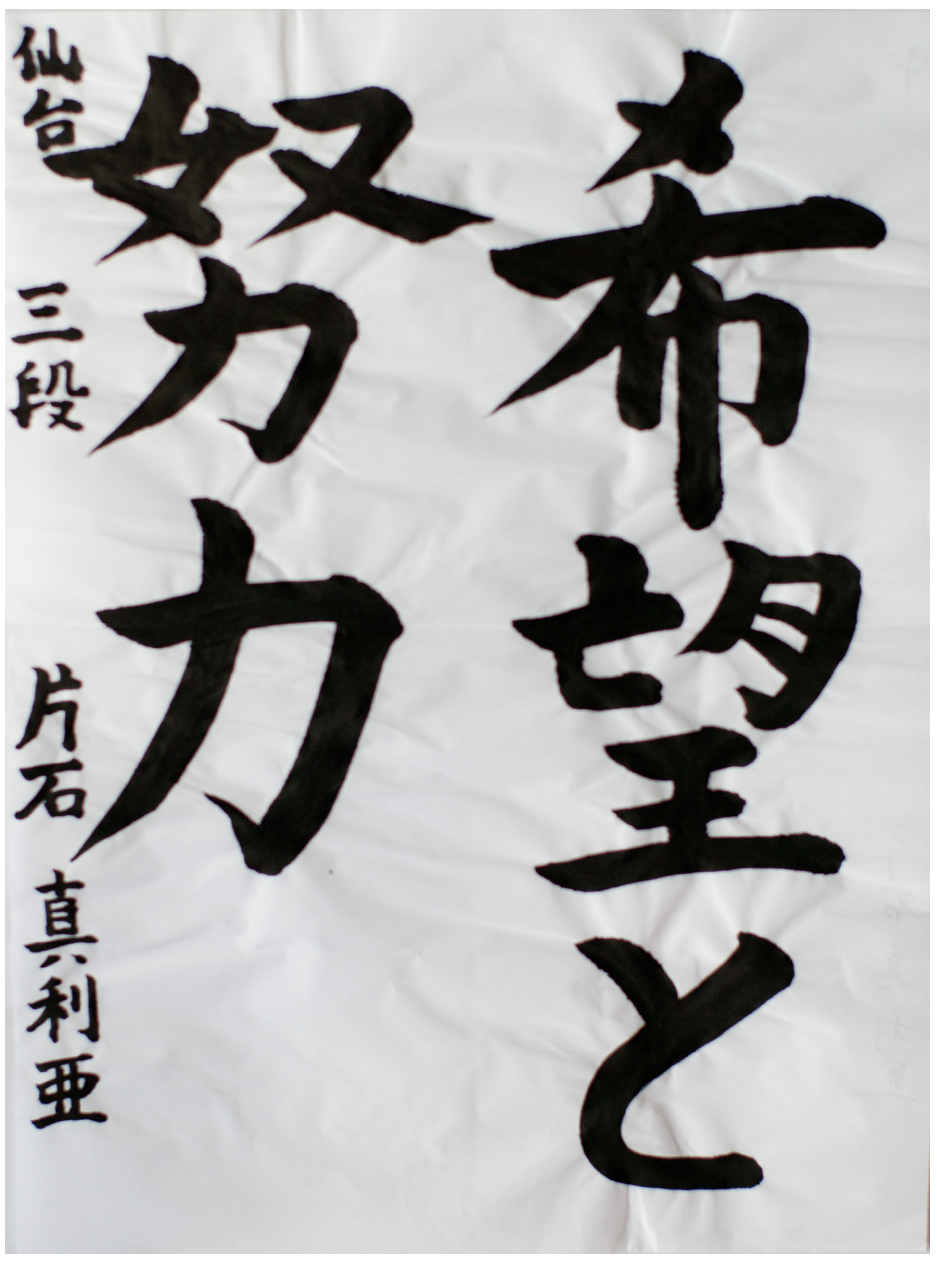 希望と
努力
仙台 三段 片石 真利亜